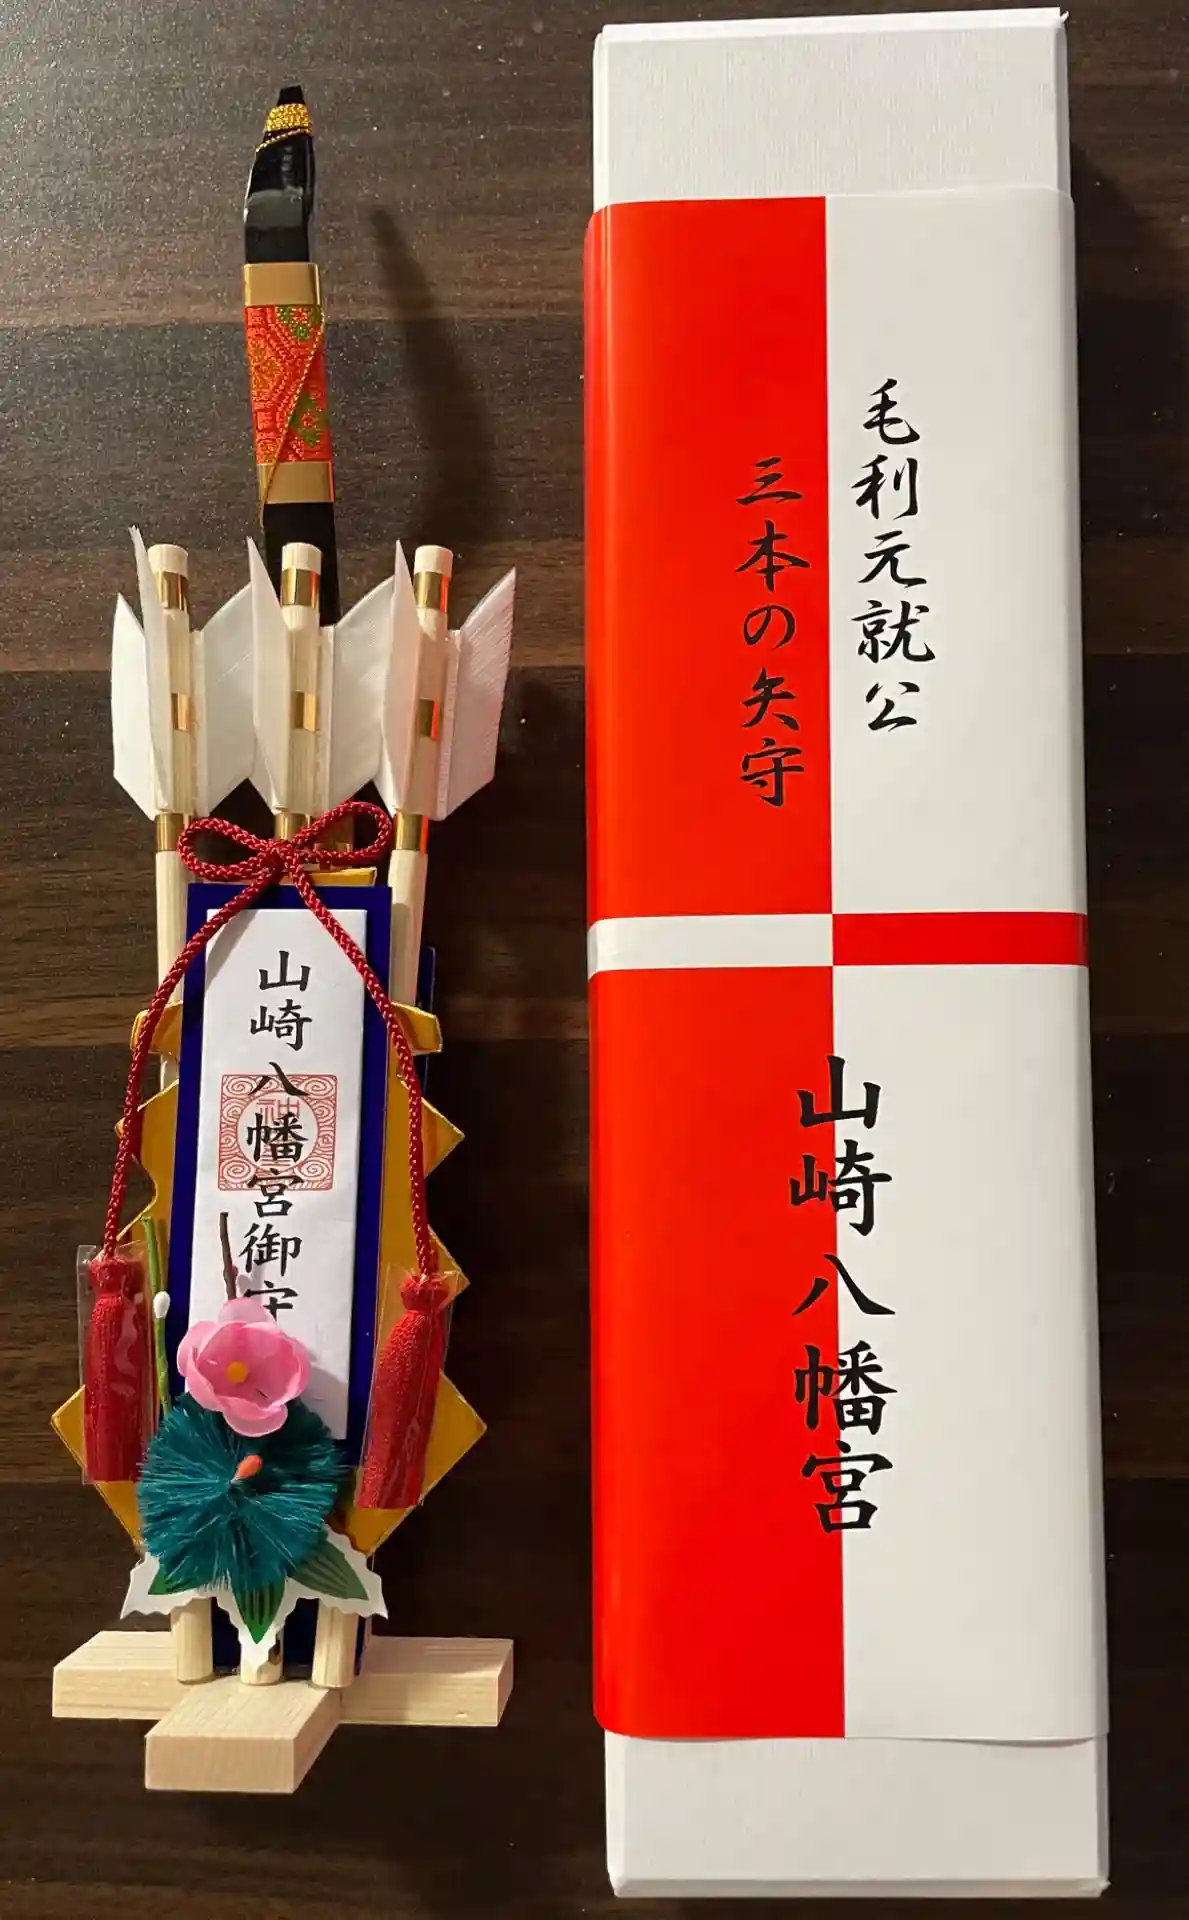 山崎八幡宮御守
神
毛利元就公
三本の矢守
山崎八幡宮